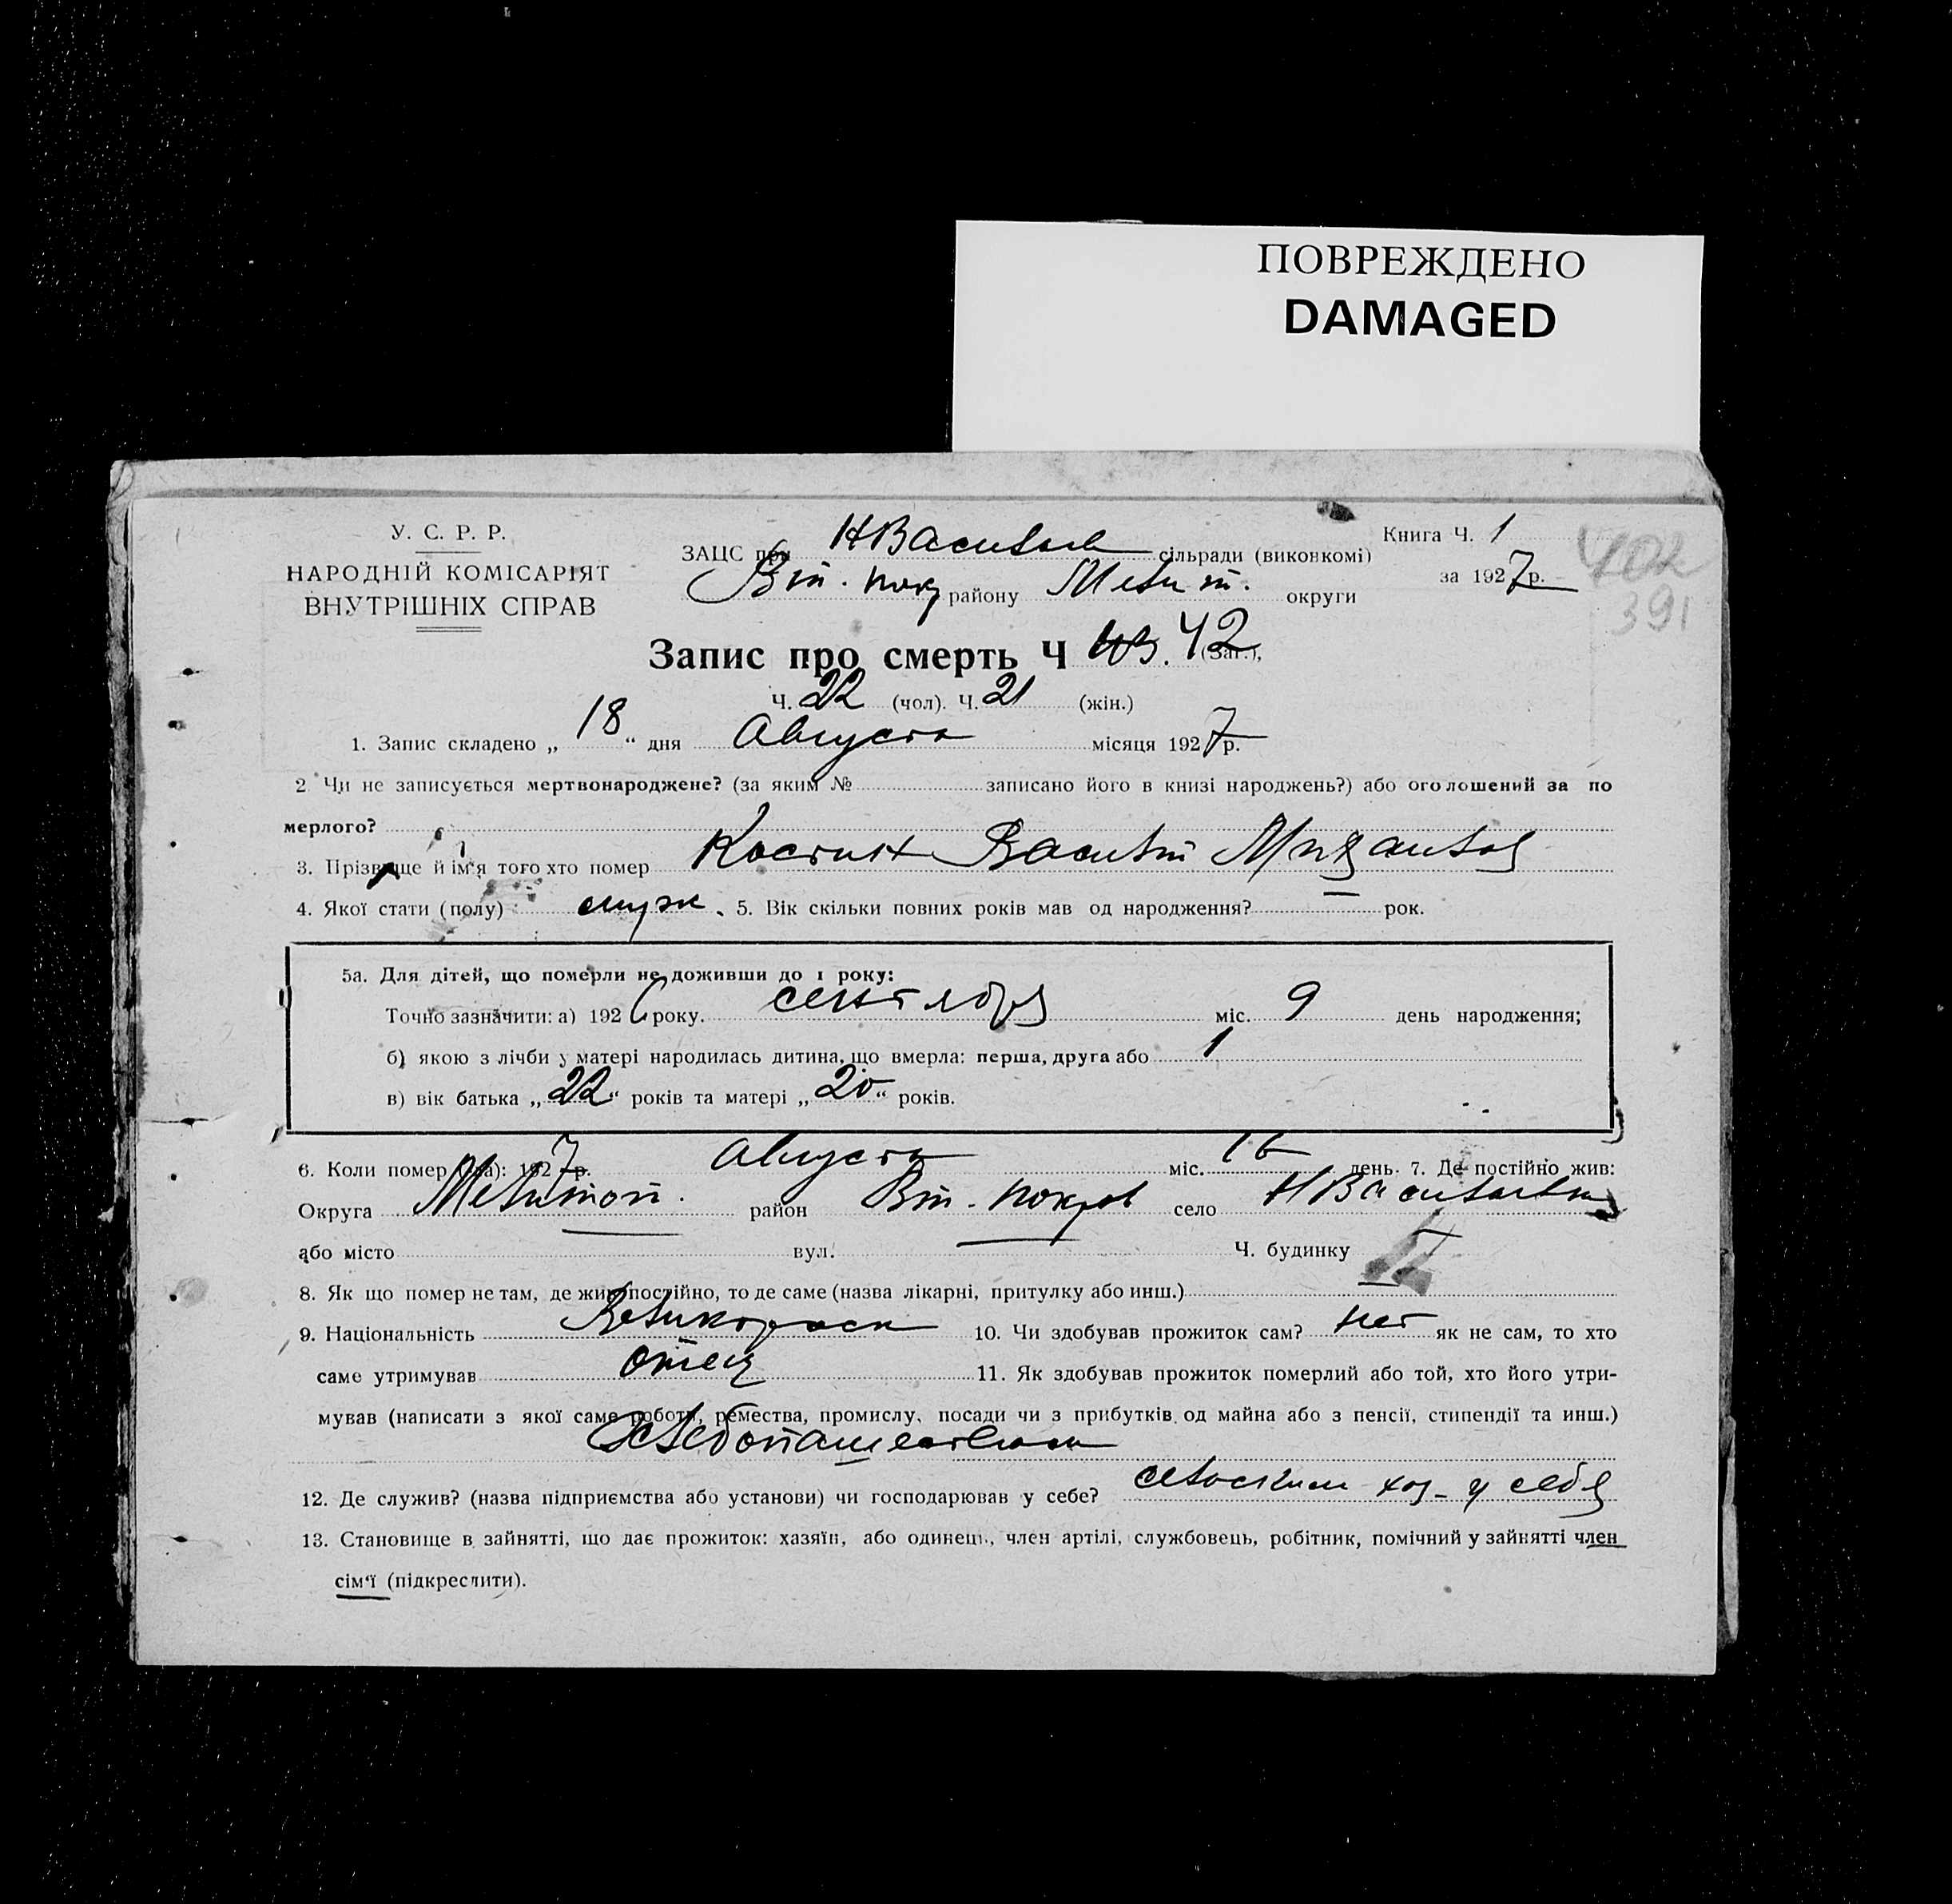 ПОВРЕЖДЕНО
DAMAGED
У. С. Р. Р.
НАРОДНІЙ КОМІСАРІЯТ
ВНУТРІШНІХ СПРАВ
ЗАЦС при НВасильев сільради (виконкомі)
Вт. покр району Мелит. округи
Книга Ч. 1
за 1927 р.
402
391
Запис про смерть Ч 42 (заг.),
Ч. 22 (чол). Ч. 21 (жін.)
1. Запис складено „ 18 “ дня Августа місяця 1927 р.
2 Чи не записується мертвонароджене? (за яким № записано його в книзі народжень?) або оголошений за по
мерлого?
3. Прізвище й ім'я того хто помер Костин Василий
4. Якої стати (полу) муж. 5. Вік скільки повних років мав од народження? — рок.
5а. Для дітей, що померли не доживши до 1 року:
Точно зазначити: а) 1926 року. сентября міс. 9 день народження;
б) якою з лічби у матері народилась дитина, що вмерла: перша, друга або 1
в) вік батька „ 22 “ років та матері „ 20 “ років.
6. Коли помер (ла): 1927 р. Августа міс. 16 день. 7. Де постійно жив:
Округа Мелитоп. район Вт. Покров село НВасильевка
або місто — вул. — Ч. будинку —
8. Як що помер не там, де жив постійно, то де саме (назва лікарні, притулку або инш.) —
9. Національність Великоросс 10. Чи здобував прожиток сам? нет як не сам, то хто
саме утримував отец 11. Як здобував прожиток померлий або той, хто його утри-
мував (написати з якої саме роботи, ремества, промислу, посади чи з прибутків од майна або з пенсії, стипендії та инш.)
Хлебопашеством
12. Де служив? (назва підприємства або установи) чи господарював у себе? сельским хоз- у себя
13. Становище в зайнятті, що дає прожиток: хазяїн, або одинець, член артілі, службовець, робітник, помічний у зайнятті член
сім'ї (підкреслити).